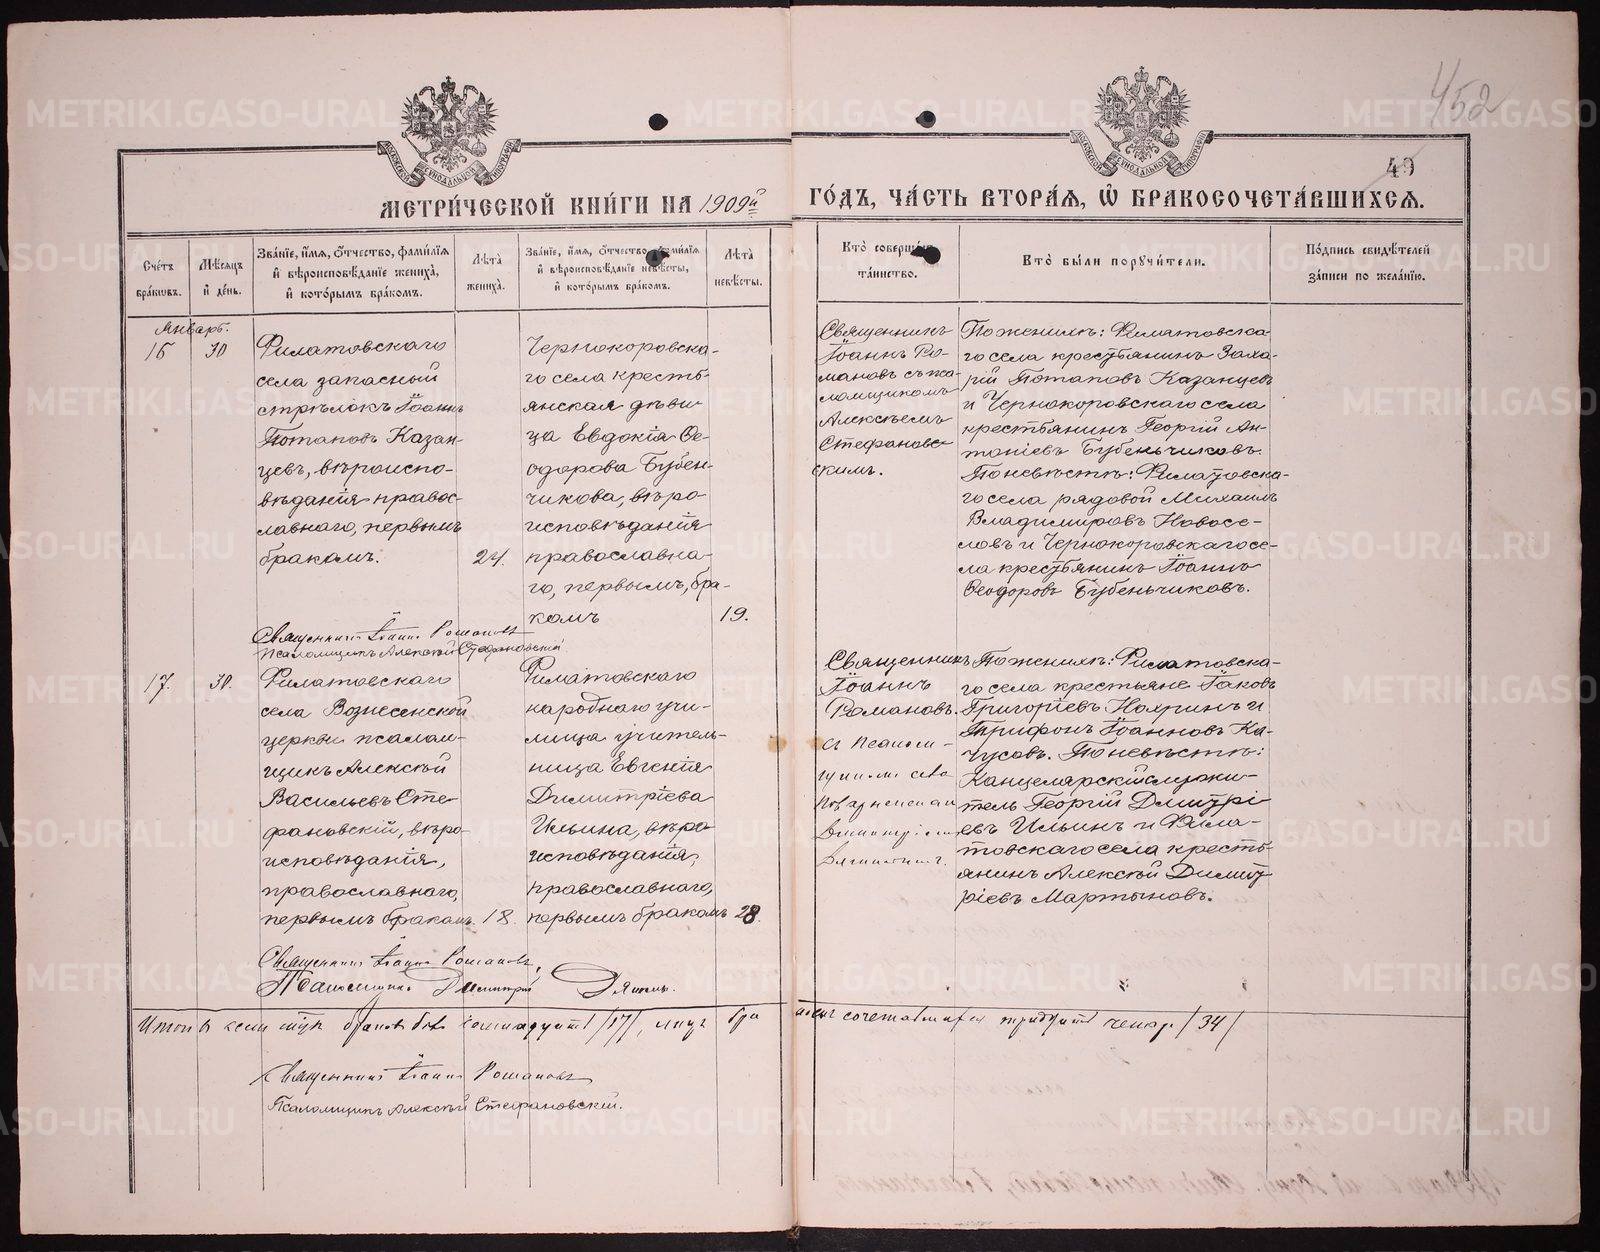 452
49
МОСКОВСКОЙ СѴНОДАЛЬНОЙ ТИПОГРАФІИ
МОСКОВСКОЙ СѴНОДАЛЬНОЙ ТИПОГРАФІИ
МЕТРИ́ЧЕСКОЙ КНИ́ГИ НА 1909й
ГО́ДЪ, ЧА́СТЬ ВТОРА́Я, Ѡ҆ БРАКОСОЧЕТА́ВШИХСЯ.
Сче́тъ
бра́кωвъ.
Мѣ́сяцъ
и҆ де́нь.
Зва́нїе, и҆́мя, ѻ҆́тчество, фами́лїя
и҆ вѣроисповѣ́данїе жениха́,
и҆ кото́рымъ бра́комъ.
Лѣ́та
жениха̀.
Зва́нїе, и҆́мя, ѻ҆́тчество, фами́лїя
и҆ вѣроисповѣ́данїе невѣ́сты,
и҆ кото́рымъ бра́комъ.
Лѣ́та
невѣ́сты.
Кто̀ соверша́лъ
та́инство.
Кто̀ бы́ли порꙋчи́тели.
По́дпись свидѣ́телей
за́писи по жела́нїю.
Январь.
16
30
Филатовскаго
села запасный
стрѣлокъ Іоаннъ
Потаповъ Казан-
цевъ, вѣроиспо-
вѣданія правос-
лавнаго, первымъ
бракомъ.
24.
Чернокоровска-
го села кресть-
янская дѣви
ца Евдокія Ѳе-
одорова Бубен-
чикова, вѣро
исповѣданія
православна-
го, первымъ, бра-
комъ
19.
Священникъ
Іоаннъ Ро-
мановъ съ пса-
ломщикомъ
Алексѣемъ
Стефановс-
скимъ.
По женихѣ: Филатовска-
го села крестьянинъ Заха-
рій Потаповъ Казанцевъ
и Чернокоровскаго села
крестьянинъ Георгій Ан-
тоніевъ Бубеньчиковъ.
По невѣстѣ: Филатовска-
го села рядовой Михаилъ
Владимировъ Новосе-
ловъ и Чернокоровскаго се-
ла крестьянинъ Іоаннъ
Ѳеодоровъ Бубеньчиковъ.
Священникъ Іоаннъ Романовъ
Псаломщикъ Алексѣй Стефановскій
17.
30.
Филатовскаго
села Вознесенской
церкви псалом-
щикъ Алексѣй
Васильевъ Сте
фановскій, вѣро-
исповѣданія,
православнаго,
первымъ бракомъ.
18.
Филатовскаго
народнаго учи-
лища учитель-
ница Евгенія
Димитріева
Ильина, вѣро
исповѣданія,
православнаго,
первымъ бракомъ
28.
Священникъ
Іоаннъ
Романовъ.
По женихѣ: Филатовска-
го села крестьяне Іаковъ
Григоріевъ Нохринъ и
Трифонъ Іоанновъ Ка-
чусовъ. По невѣстѣ:
Канцелярскій служи-
тель Георгій Дмитрі
евъ Ильинъ и Фила-
товскаго села кресть-
янинъ Алексѣй Димит
ріевъ Мартыновъ.
Священникъ Іоаннъ Романовъ,
Псаломщикъ Димитрій
браковъ
/17/,
сочетавшихся тридцать четыре /34/
Священникъ Іоаннъ Романовъ
Псаломщикъ Алексѣй Стефановскій.